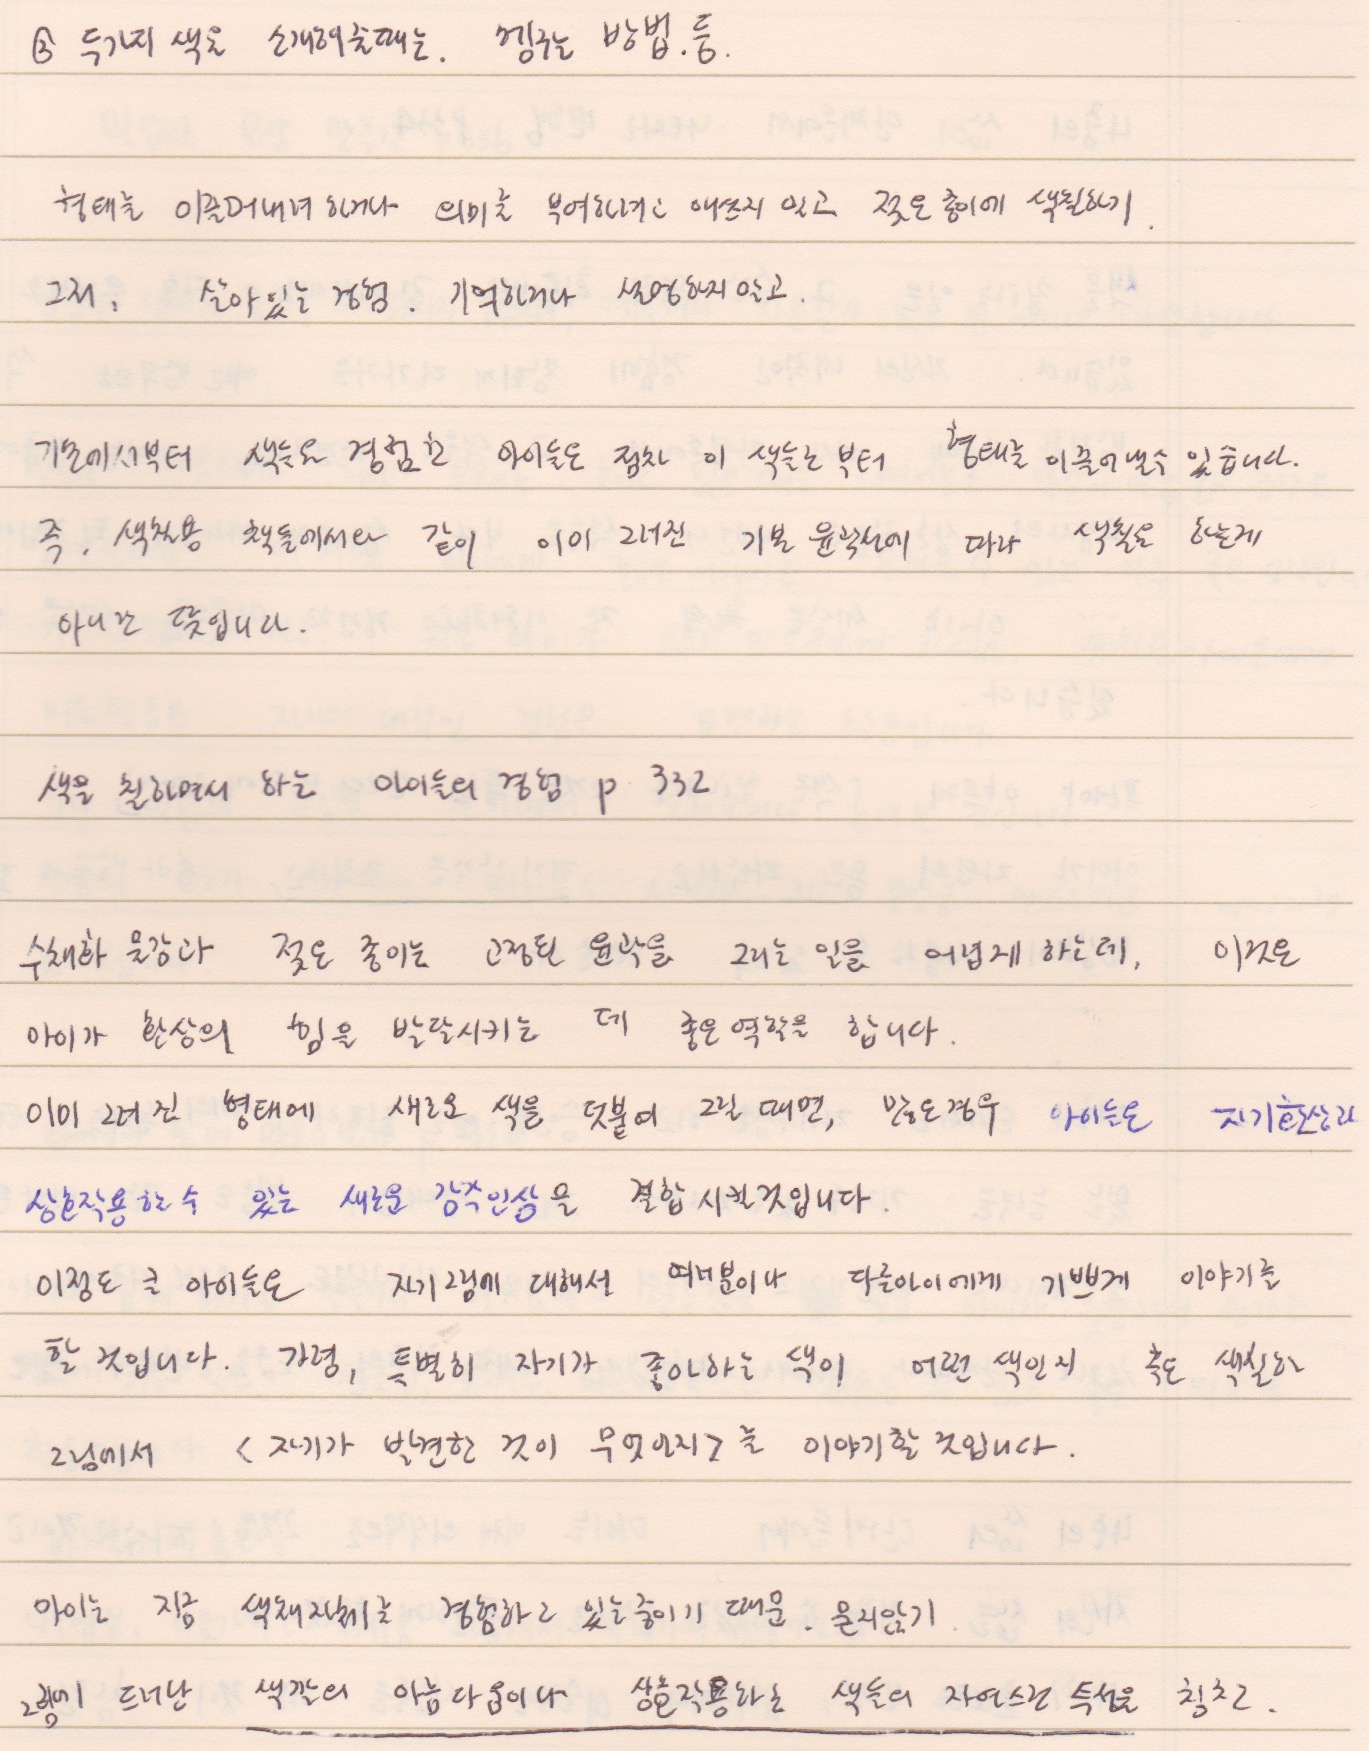 ③ 두가지 색을 소개해줄때는. 헹구는 방법.등.
형태를 이끌어내려하거나 의미를 부여하려고 애쓰지 않고 젖은종이에 색칠하기.
그저, 살아있는 경험. 기억하거나 설명하지않고.
기본에서부터 색들을 경험한 아이들은 점차 이 색들로부터 형태를 이끌어낼수 있습니다.
즉, 색칠용 책들에서와 같이 이미 그려진 기본 윤곽선에 따라 색칠을 하는게
아니란 뜻입니다.
색을 칠하면서 하는 아이들의 경험 p 332
수채화 물감과 젖은 종이는 고정된 윤곽을 그리는 일을 어렵게 하는데, 이것은
아이가 환상의 힘을 발달시키는 데 좋은역할을 합니다.
이미 그려진 형태에 새로운 색을 덧붙여 그릴 때면, 많은경우 아이들은 자기환상과
상호작용할 수 있는 새로운 감각인상을 결합시킬것입니다.
이정도 큰 아이들은 자기그림에 대해서 여러분이나 다른아이에게 기쁘게 이야기를
할 것입니다. 가령, 특별히 자기가 좋아하는 색이 어떤 색인지 혹은 색칠한
그림에서 <자기가 발견한 것이 무엇인지>를 이야기할것입니다.
아이는 지금 색채자체를 경험하고 있는중이기 때문. 묻지않기.
그림에 드러난 색깔의 아름다움이나 상호작용하는 색들의 자연스런 특성을 칭찬.